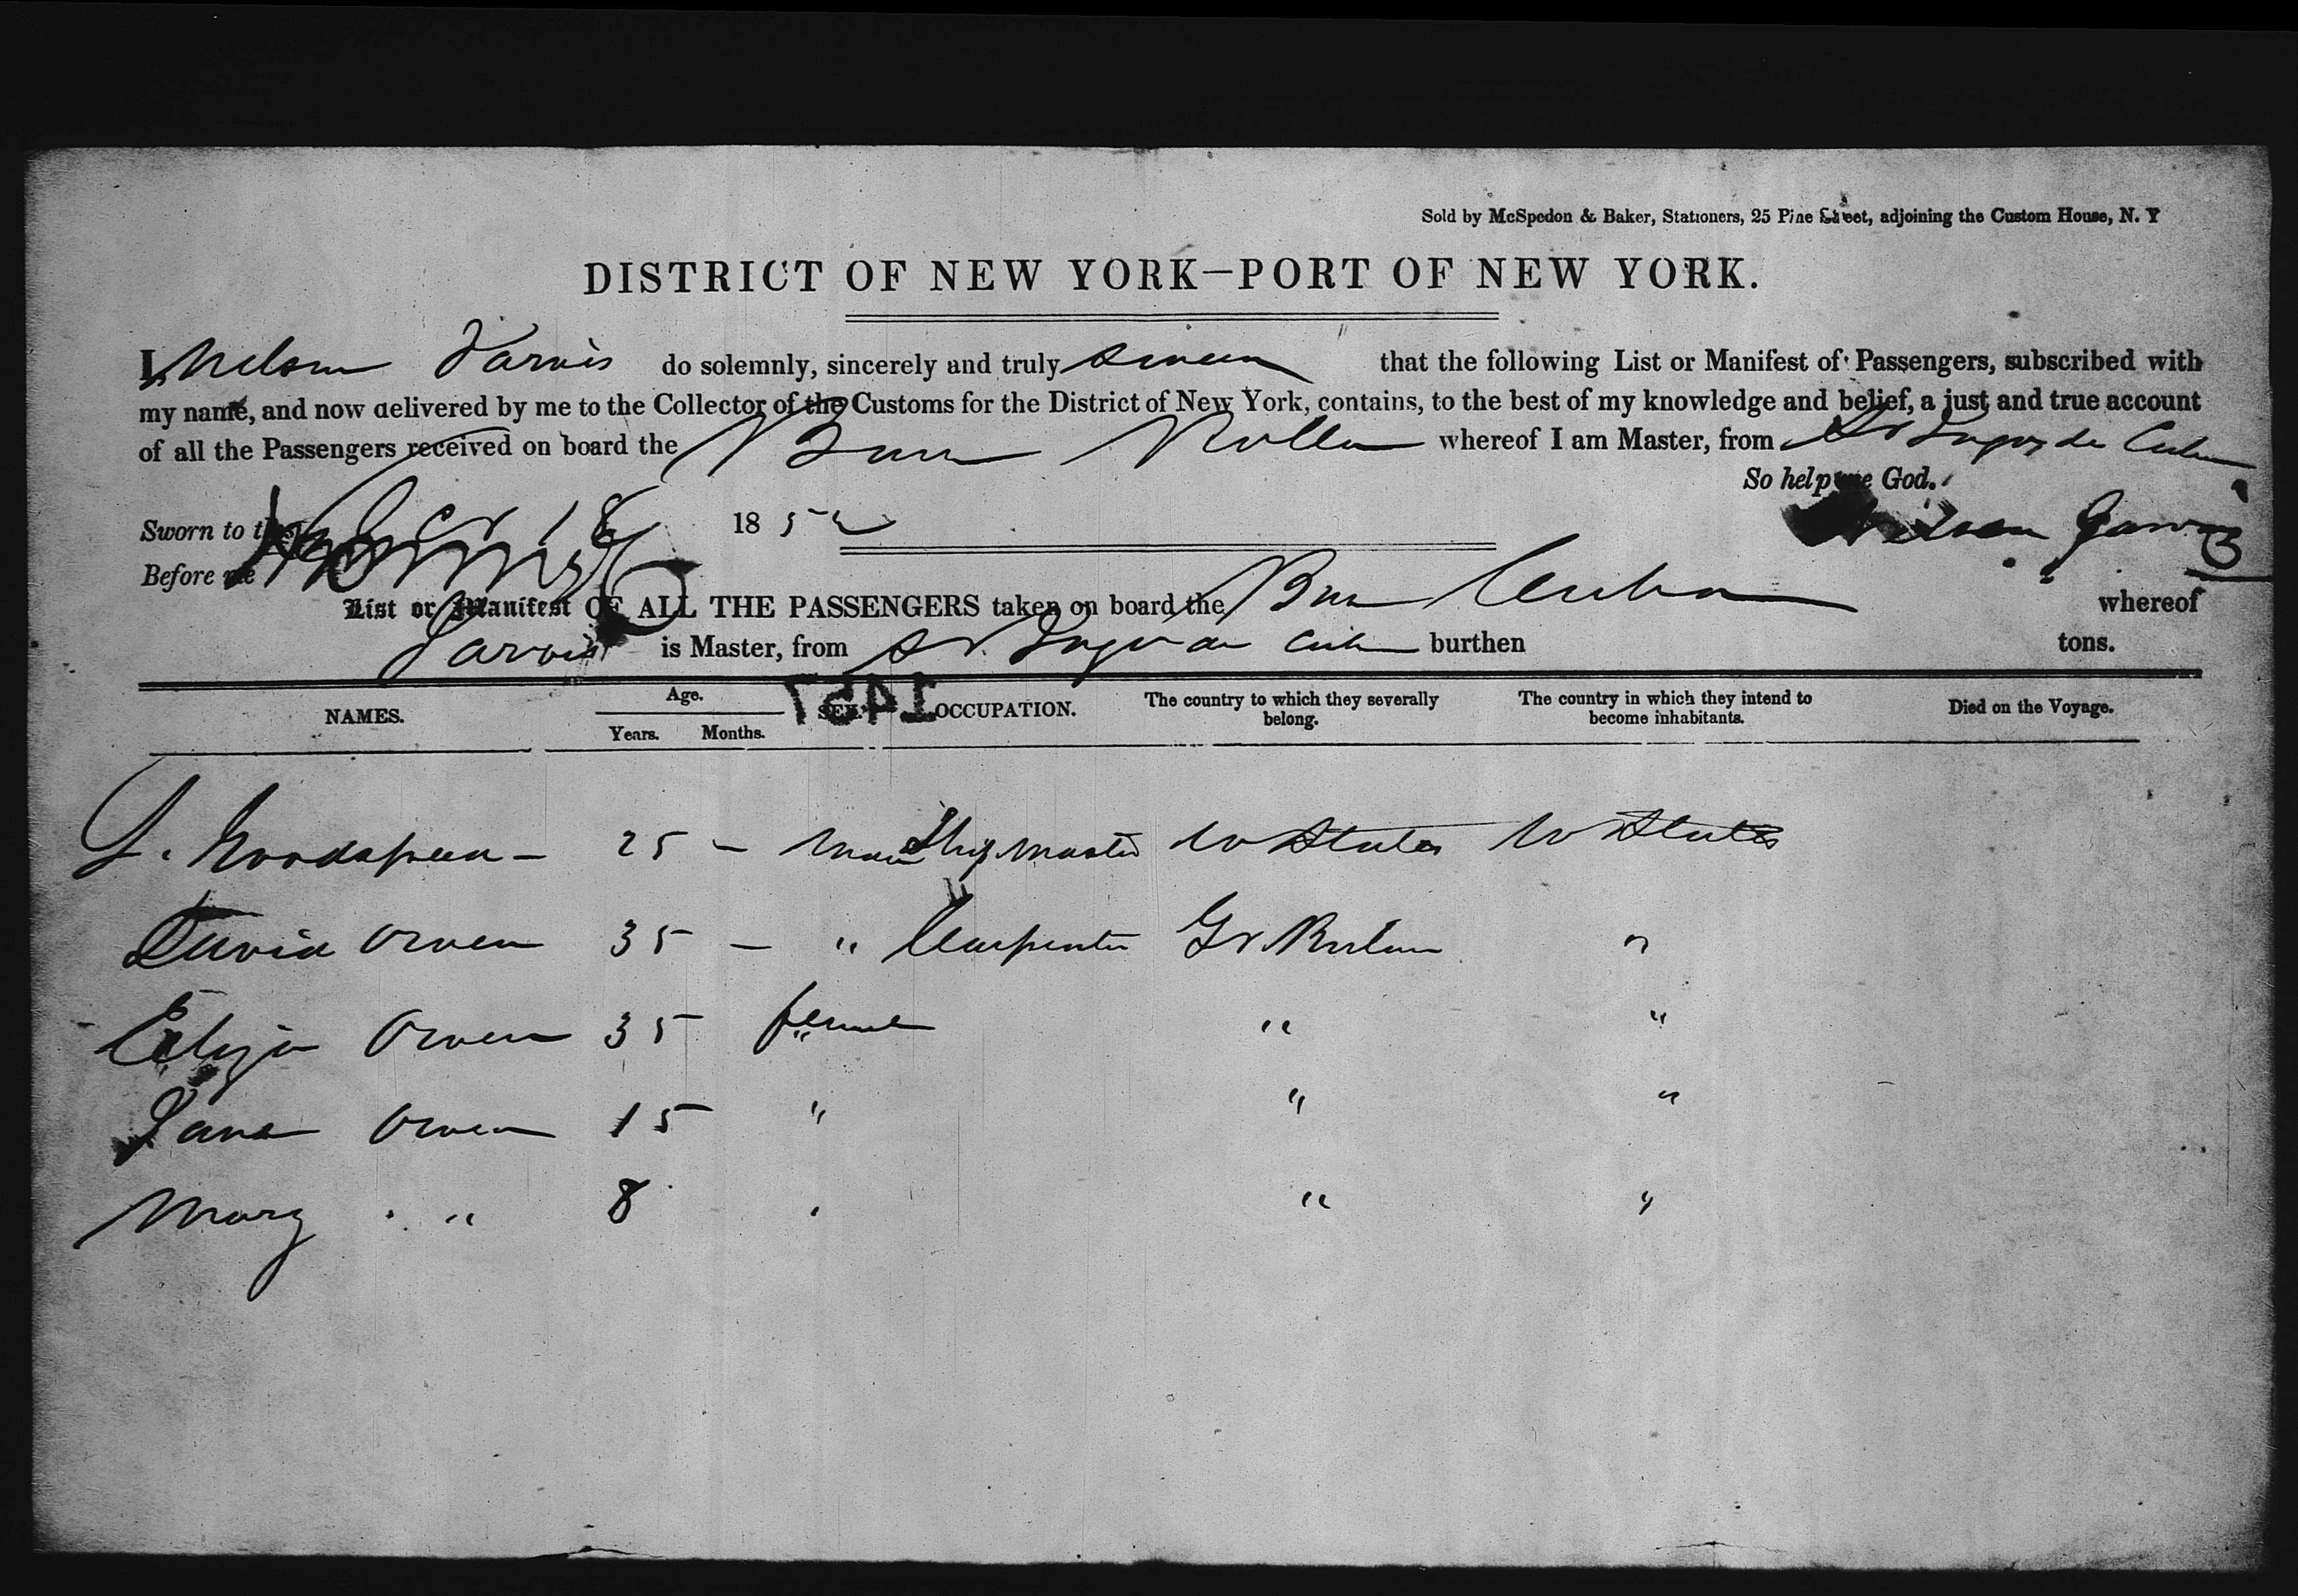 Sold by McSpedon & Baker, Stationers, 25 Pine Street, adjoining the Custom House, N. Y
DISTRICT OF NEW YORK—PORT OF NEW YORK.
I, Nelson Jarvis do solemnly, sincerely and truly swear that the following List or Manifest of Passengers, subscribed with
my name, and now delivered by me to the Collector of the Customs for the District of New York, contains, to the best of my knowledge and belief, a just and true account
of all the Passengers received on board the Rolla whereof I am Master, from St Jago de Cuba
So help me God.
Sworn to this Oct 18 1852
Nelson Jarvis
Before me
List or Manifest OF ALL THE PASSENGERS taken on board the Cuba whereof
Jarvis is Master, from St. Jago de Cuba burthen tons.
1457
NAMES. Age. SEX. OCCUPATION. The country to which they severally belong. The country in which they intend to become inhabitants. Died on the Voyage.
Years. Months.
25 - Male Ship master U States U States
David Owen 35 - " Carpenter Gt Britain "
Eliza Owen 35 female " "
Jane Owen 15 " " "
Mary " 8 " "